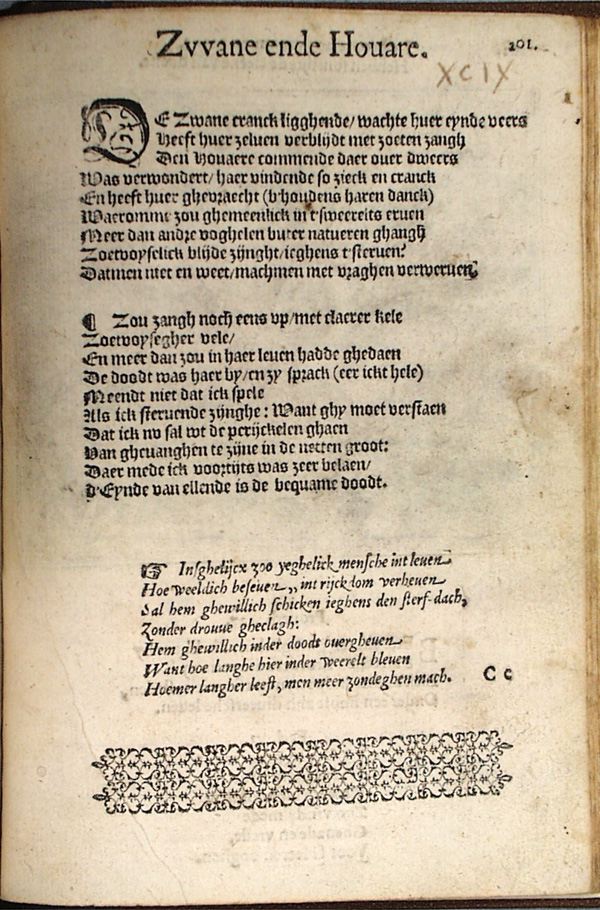 Zvvane ende Houare.
201.
XCIX
DE Zwane cranck ligghende/ wachte huer eynde veers
Heeft huer zeluen verblijdt met zoeten zangh
Den Houaere commende daer ouer dweers
Was verwondert/ haer vindende so zieck en cranck
En heeft huer ghevraecht (v'houdens haren danck)
Waeromme zou ghemeenlick in t'sweerelts eruen
Meer dan andre voghelen buter natueren ghangh
Zoetvoyselick blijde zijnght/ ieghens t'steruen?
Datmen niet en weet/ machmen met vraghen verweruen.
¶ Zou zangh noch eens vp/ met claerer kele
Zoetvoysegher vele/
En meer dan zou in haer leuen hadde ghedaen
De doodt was haer by/ en zy sprack (eer ickt hele)
Meendt niet dat ick spele
Als ick steruende zijnghe: Want ghy moet verstaen
Dat ick nv sal wt de perijckelen ghaen
Van gheuanghen te zijne in de netten groot:
Daer mede ick voortijts was zeer belaen/
d'Eynde van ellende is de bequame doodt.
☞ Insghelijcx zoo yeghelick mensche int leuen
Hoe weeldich beseuen,, int rijckdom verheuen
Sal hem ghewillich schicken ieghens den sterf-dach,
Zonder drouue gheclagh:
Hem ghewillich inder doodt ouergheuen
Want hoe langhe hier inder weerelt bleuen
Hoemer langher leeft, men meer zondeghen mach.
C c